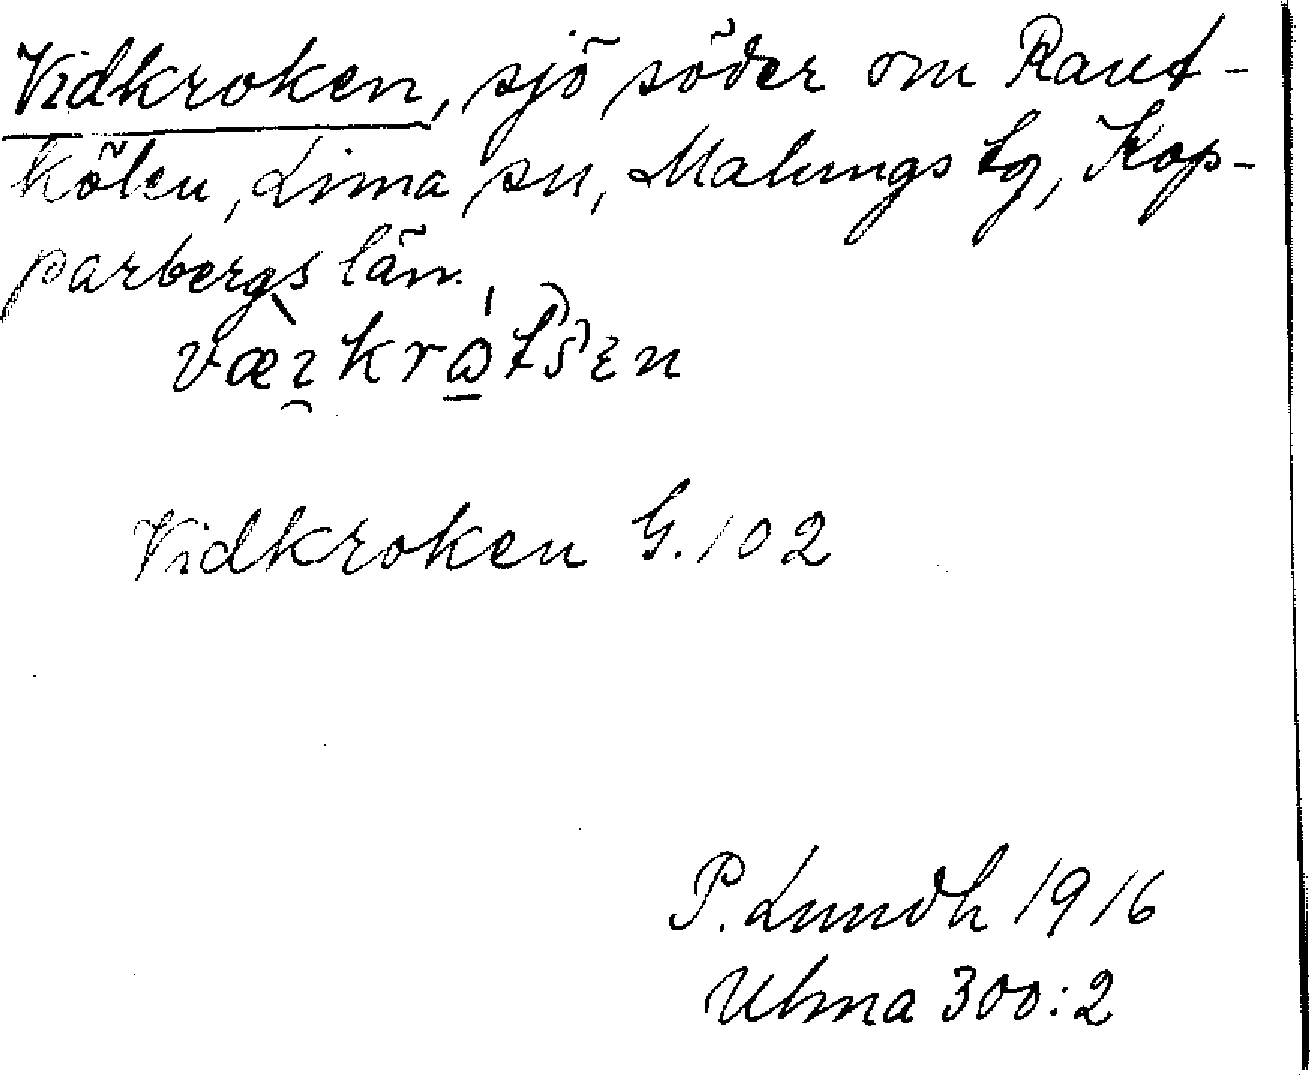 Vidkroken, sjö söder om Raut-
kölen, Lima sn, Malungs tg, Kop-
parbergs län.
Vidkroken G.102
P. Lundh 1916
Ulma 300:2